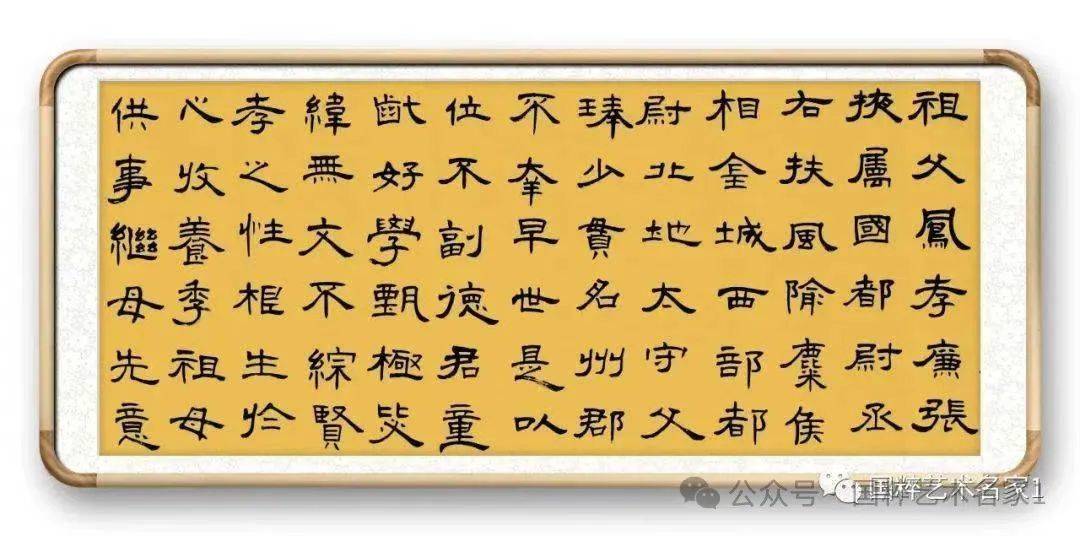 祖父鳳孝廉張
掖屬國都尉丞
右扶風隃麋侯
相金城西部都
尉北地太守父
琫少貫名州郡
不幸早世是以
位不副德君童
齔好學甄極毖
緯無文不綜賢
孝之性根生於
心收養季祖母
供事繼母先意
国粹艺术名家1
公众号 · 国粹艺术名家1